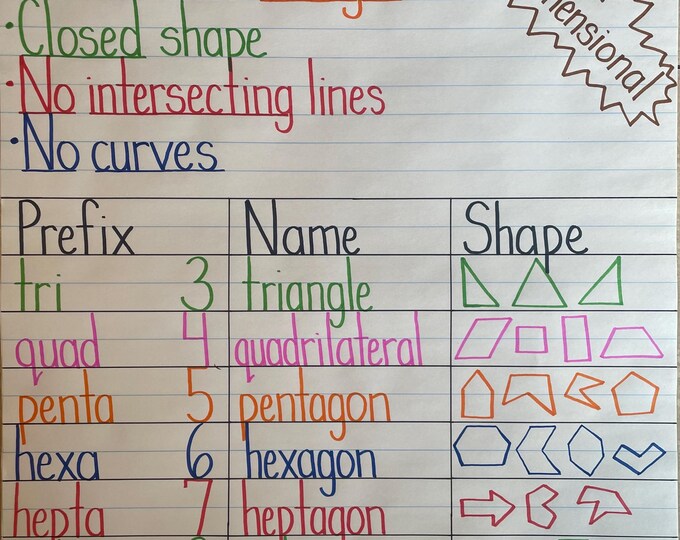 mensional
·Closed shape
·No intersecting lines
·No curves
Prefix Name Shape
tri 3 triangle
quad 4 quadrilateral
penta 5 pentagon
hexa 6 hexagon
hepta 7 heptagon